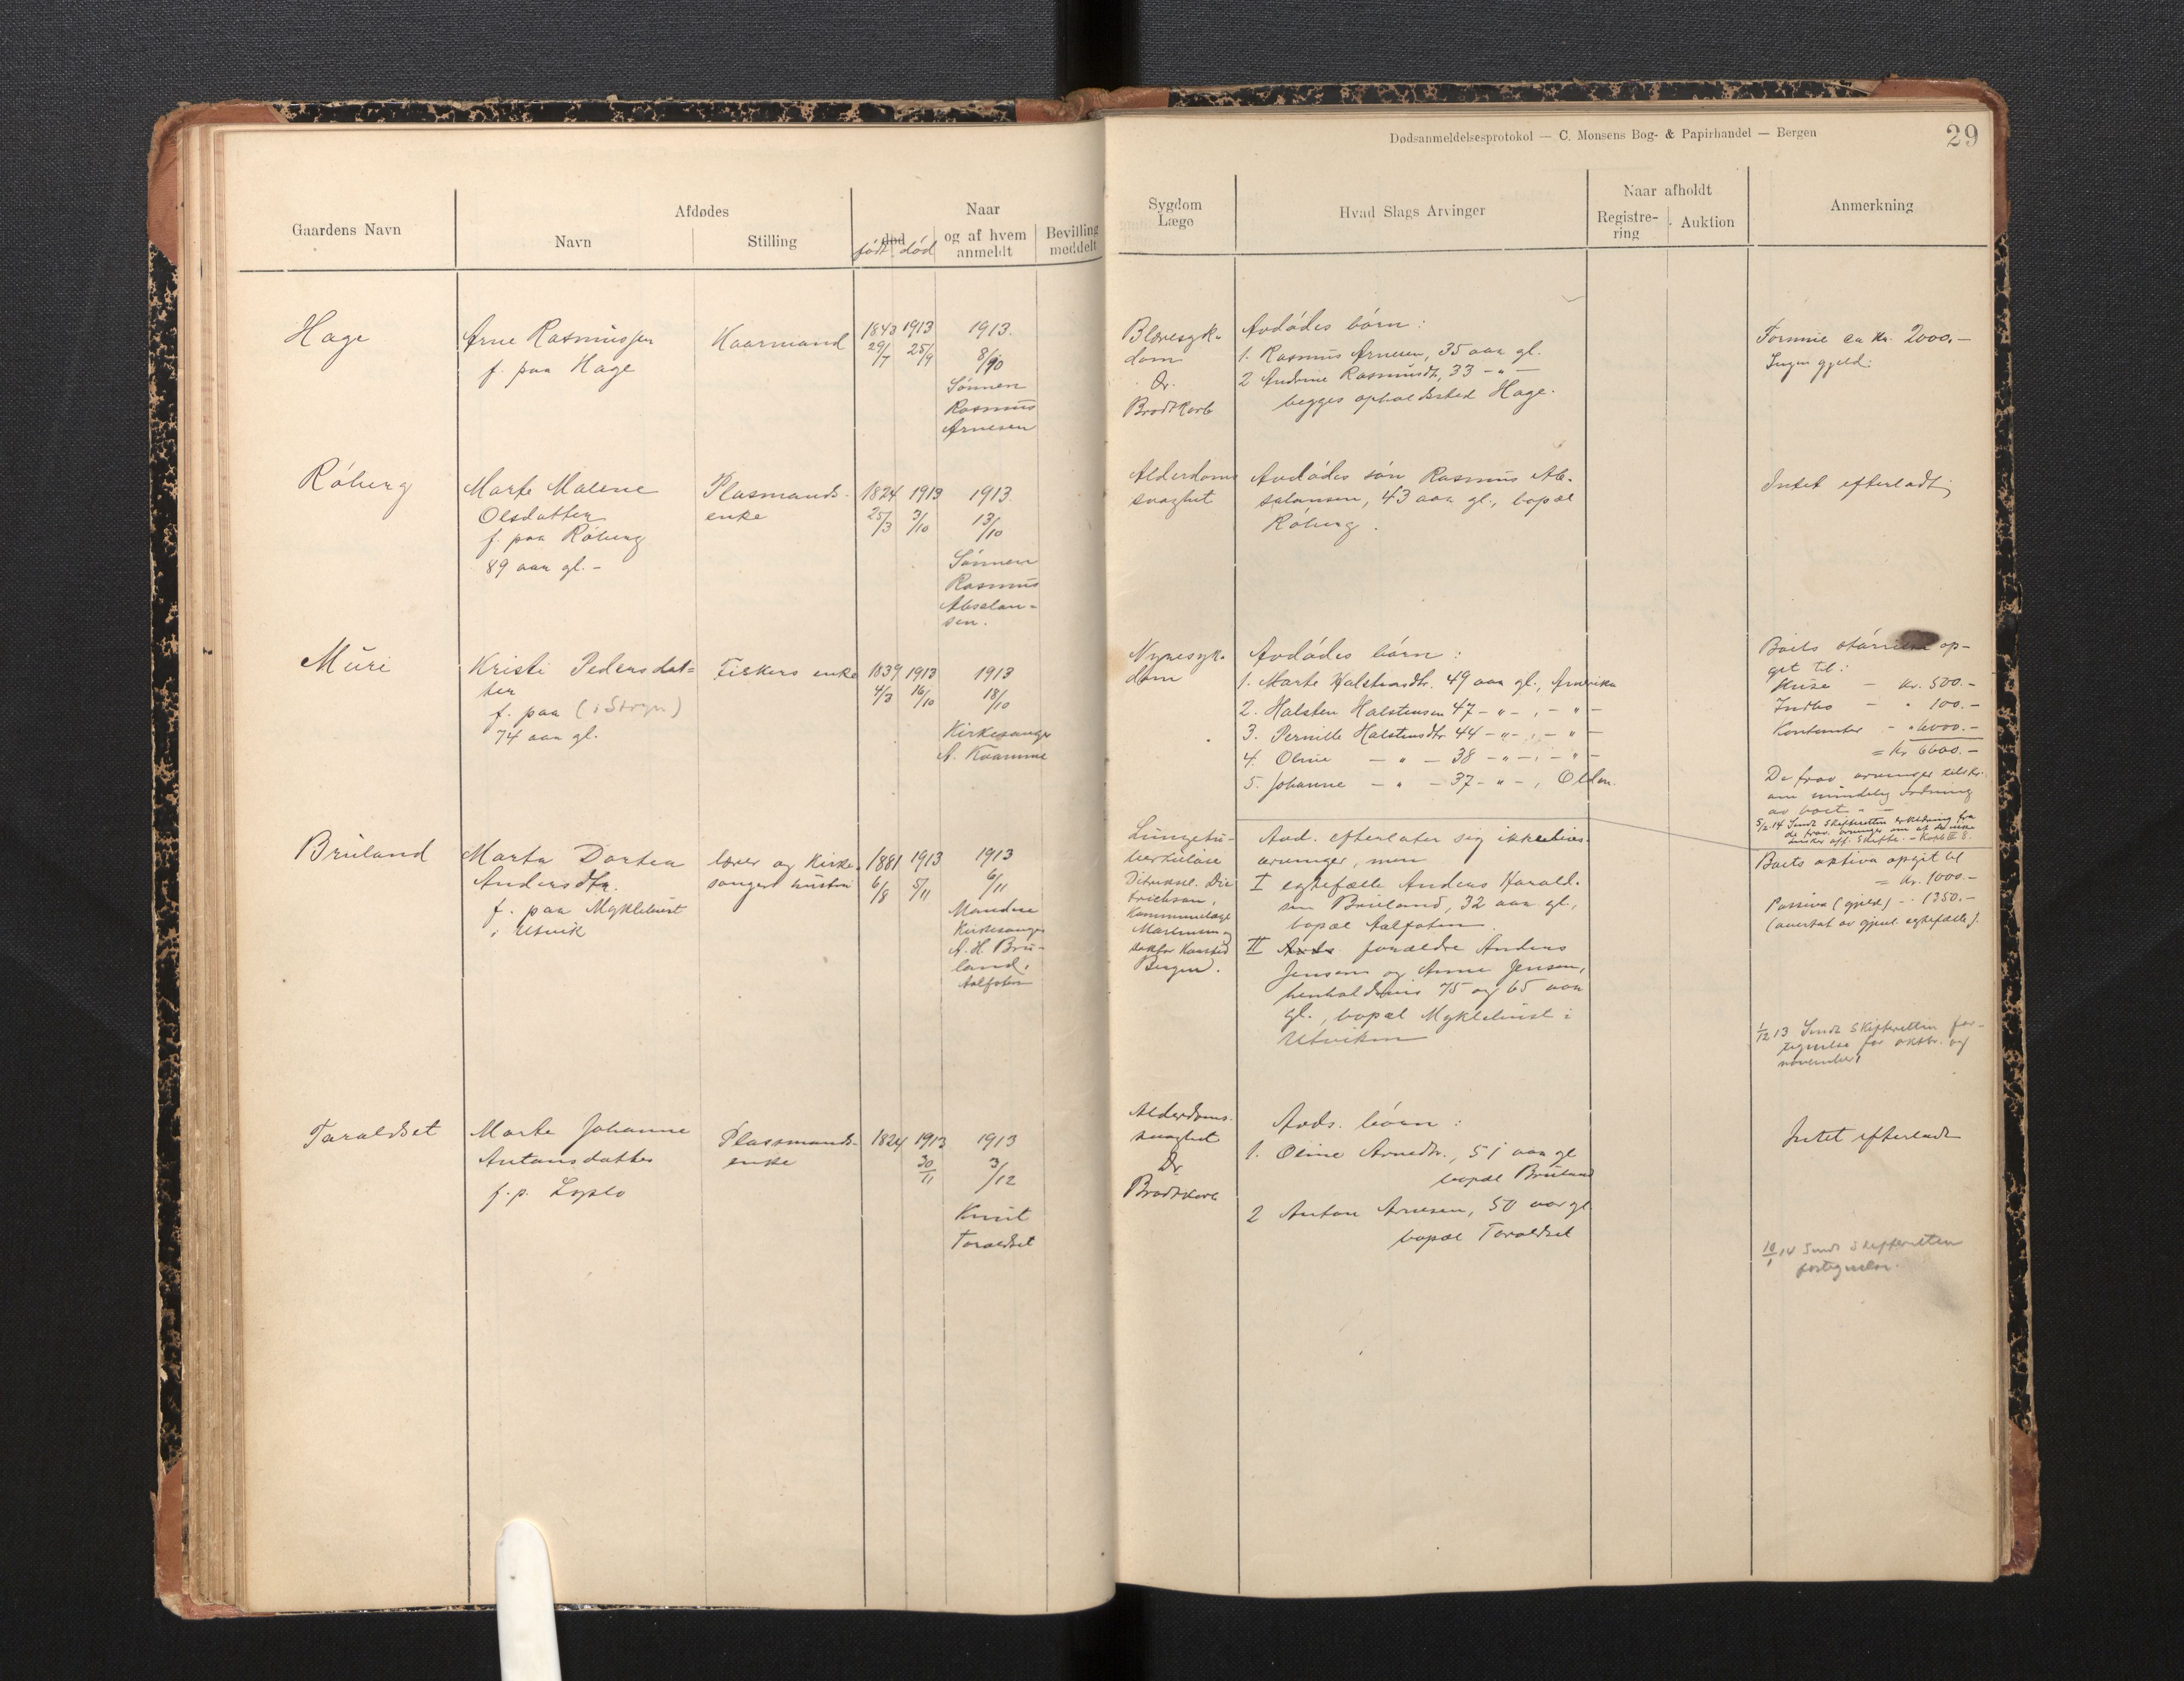 Dødsanmeldelsesprotokol — C. Monsens Bog- & Papirhandel — Bergen
29
Gaardens Navn
Afdødes
Navn
Stilling
Naar
død
født død
og af hvem
anmeldt
Bevilling
meddelt
Sygdom
Læge
Hvad Slags Arvinger
Naar afholdt
Registre-
ring
Auktion
Anmerkning
Hage
Arne Rasmussen
f. paa Hage
Kaarmand
1843 1913
29/7 25/9
1913.
8/10
Sønnen
Rasmus
Arnesen
Blæresyk-
dom
Dr.
Brodtkorb
Avdødes børn:
1. Rasmus Arnesen, 35 aar gl.
2 Andrine Rasmusdtr, 33 – " –
begges opholdsted Hage.
Formue ca kr. 2000.-
Ingen gjeld.
Røberg
Marte Malene
Olsdatter
f. paa Røberg
89 aar gl. –
Plasmands-
enke
1824 1913
25/3 3/10
1913.
13/10
Sønnen
Rasmus
Absalon-
sen.
Alderdoms
svaghet
Avdødes søn Rasmus Ab-
salonsen, 43 aar gl., bopæl
Røberg.
Intet efterladt
Muri
Kristi Pedersdat=
ter
f. paa (i Stryn)
74 aar gl.
Fiskers enke
1839 1913
4/3 16/10
1913
18/10
Kirkesanger
A. Kvamme
Nyresyk-
dom
Avdødes børn:
1. Marte Halstensdtr. 49 aar gl., Amerika
2. Halsten Halstensen 47 – " – , – " –
3. Pernille Halstensdtr 44 – " – , – " –
4. Oline – " – 38 – " – , – " –
5. Johanne – " – 37 – " – , Olden.
Boets størrelse op-
git til:
Huse – kr. 500.-
Indbo – " 100.-
Kontanter – " 6000.-
= kr 6600.-
De frav. arvinger tilskr.
om mindelig ordning
av boet. " –
5/2 14 Sendt Skifteretten erklæring fra
de frav. arvinger om at de ikke
ønsker off. Skifte. – Kopb II 8.
Bruland
Marta Dortea
Andersdtr.
f. paa Myklebust
i Utvik
lærer og kirke-
sangers hustru
1881 1913
6/8 5/11
1913
6/11
Manden
Kirkesanger
A. H. Bru-
land,
Aalfoten
Lungetu-
berkuløse
Distriksl. Die
trichson,
Kommunelæge
Martinun og
doktor Kansted
Bergen.
Avd. efterlater sig ikke livs-
arvinger, men
I egtefælle Anders Harald-
sen Bruland, 32 aar gl.,
bopæl Aalfoten.
II Avds. forældre Anders
Jensen og Anne Jensen,
henholdsvis 75 og 65 aar
gl., bopæl Myklebust i
Utviken
Boets aktiva opgit til
= kr. 1000.-
Passiva (gjeld) – " 1350.-
(overtat av gjenl. egtefælle).
1/12 13 Sendt Skifteretten for-
tegnelse for oktbr. og
november
Taraldset
Marte Johanne
Antonsdatter
f. p. Lyslo
Plassmands-
enke
1824 1913
30/11
1913
3/12
Knut
Taraldset
Alderdoms-
svaghet
Dr.
Brodtkorb
Avds. børn:
1. Oline Arnedtr., 51 aar gl
bopæl Bruland
2 Anton Arnesen, 50 aar gl
bopæl Taraldset
Intet efterladt
10/1 14 Sendt Skifteretten
fortegnelse.